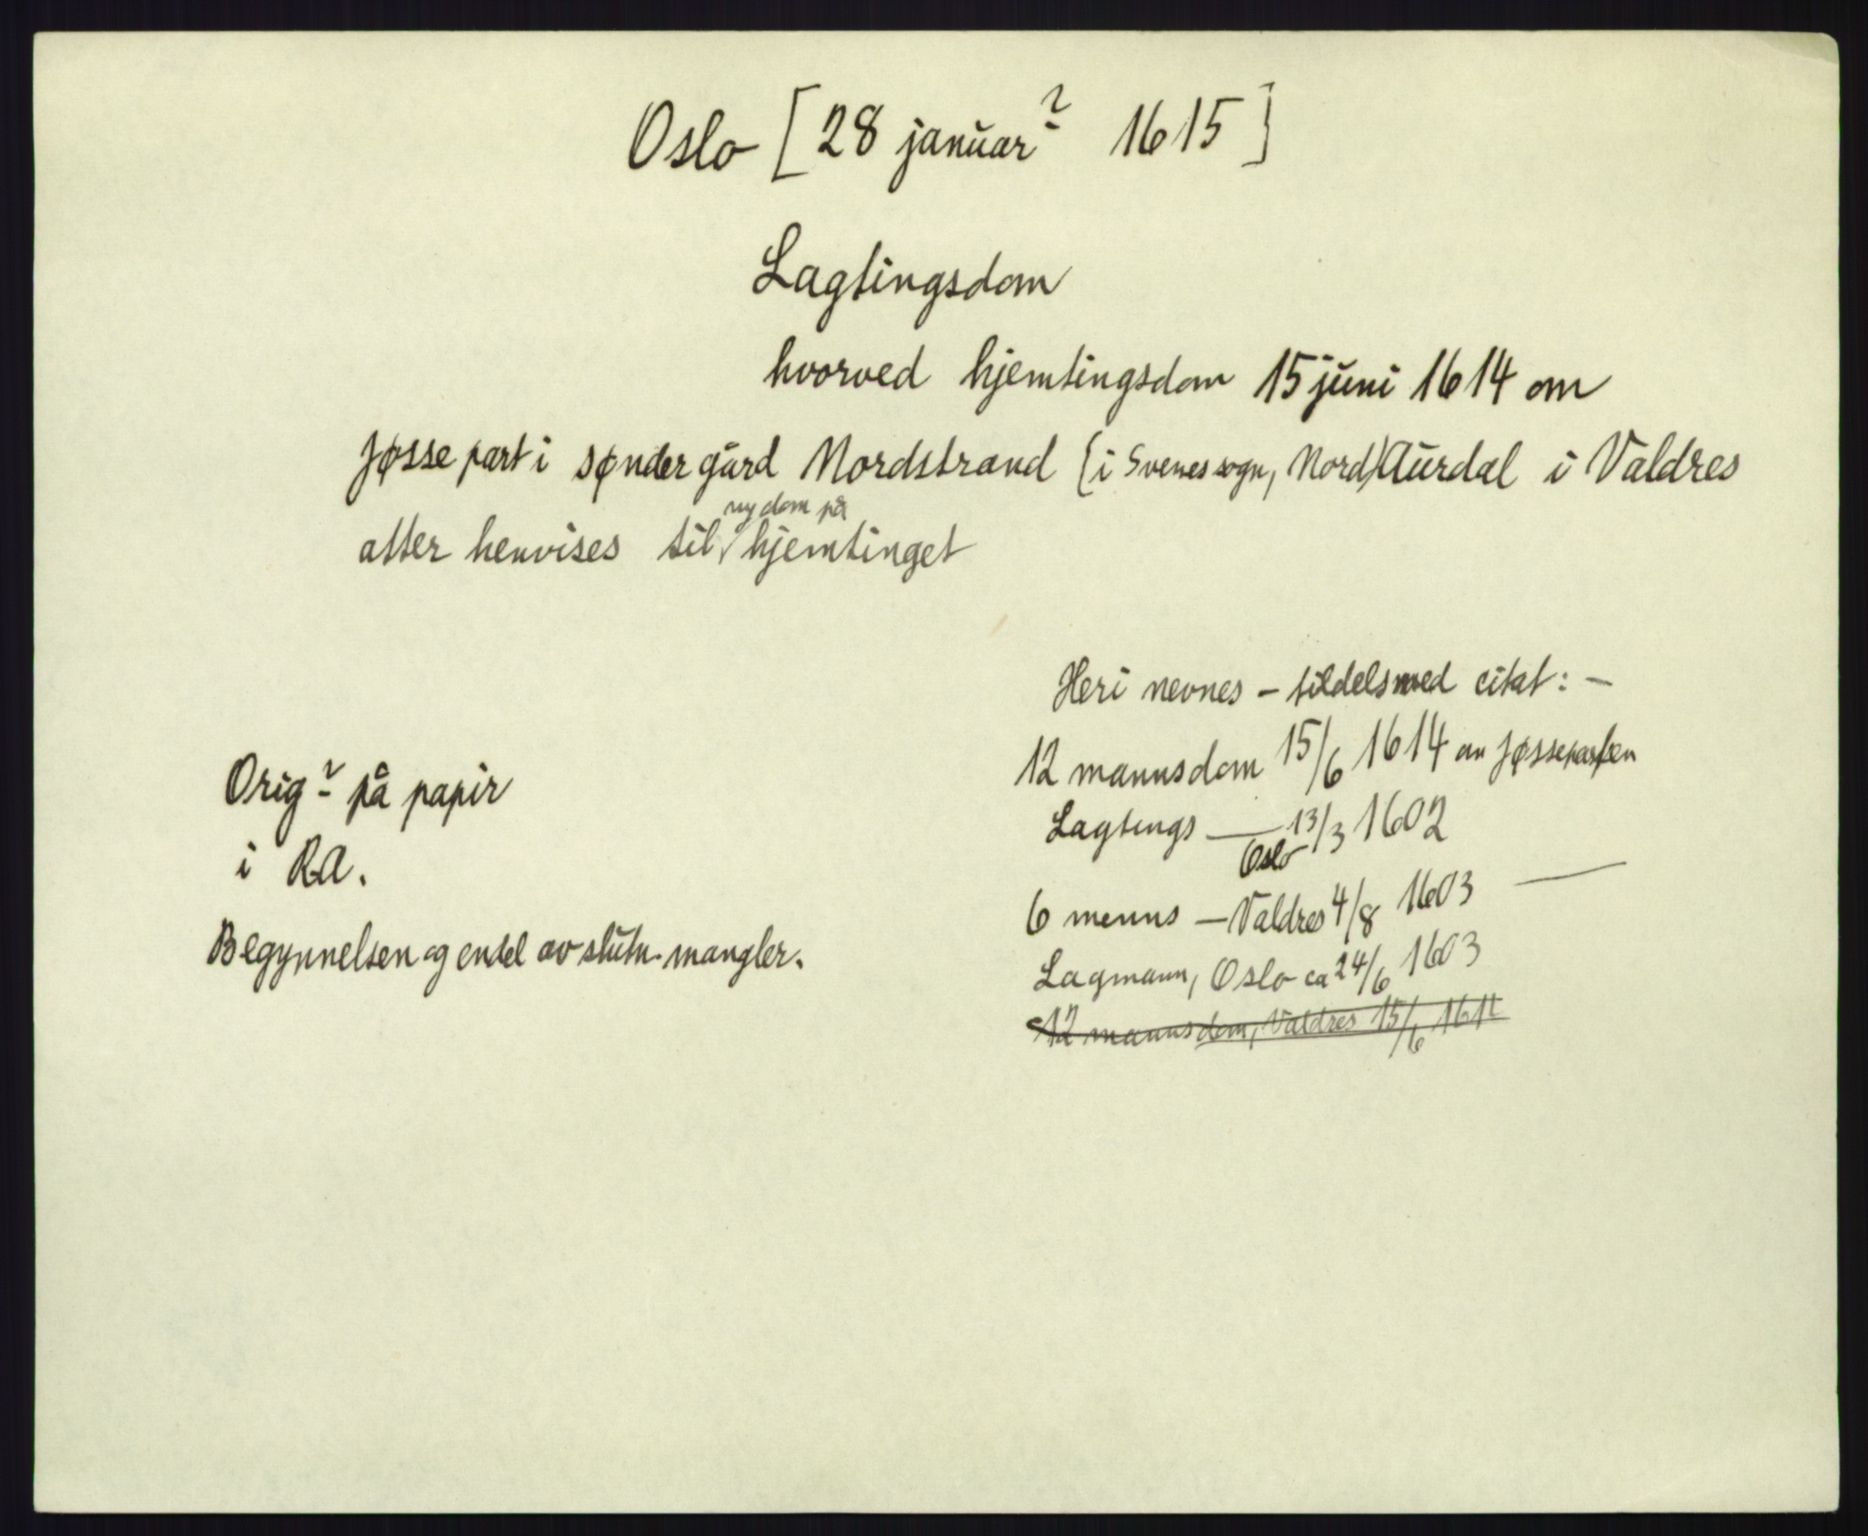 Oslo [28 januar? 1615]
Lagtingsdom
hvorved hjemtingsdom 15 juni 1614 om
Jøssepart i søndergård Nordstrand (i Svenes sogn, Nord)Aurdal i Valdres
atter henvises til ny dom på hjemtinget
Heri nevnes – tildels med citat: –
12 mannsdom 15/6 1614 om Jøsseparten
Lagtings — Oslo 13/3 1602
6 menns — Valdres 4/8 1603 —
Lagmann, Oslo ca 24/6 1603
12 mannsdom, Valdres 15/6
Orig? på papir
i RA.
Begynnelsen og endel av slutn. mangler.